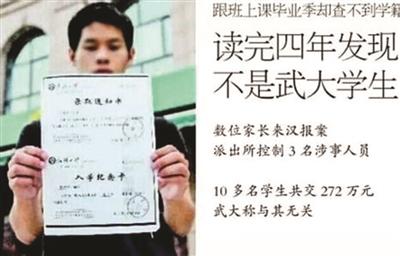 跟班上课毕业季却查不到学籍
读完四年发现
不是武大学生
数位家长来汉报案
派出所控制 3 名涉事人员
10 多名学生共交 272 万元
武大称与其无关
录取通知书
入学纪念卡